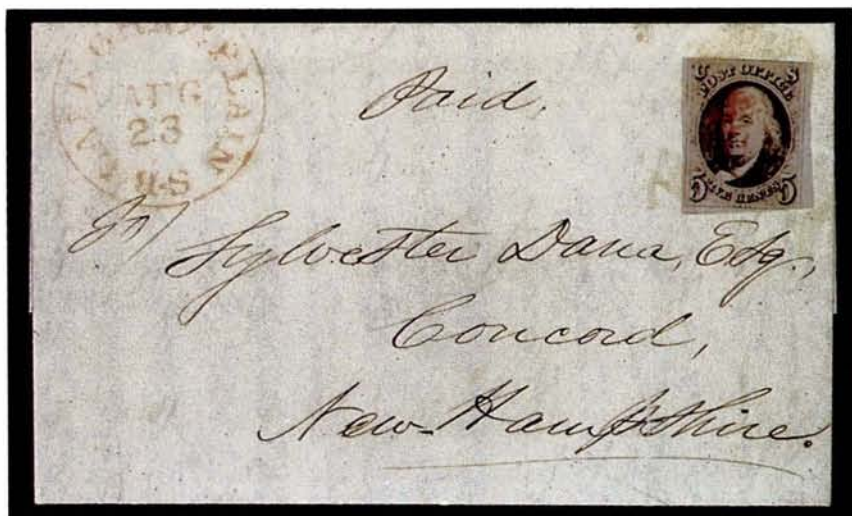 CHAMPLAIN
AUG
23
Paid.
U S
POST OFFICE
5 FIVE CENTS 5
Sylvester Dana, Esq.,
Concord,
New-Hampshire.